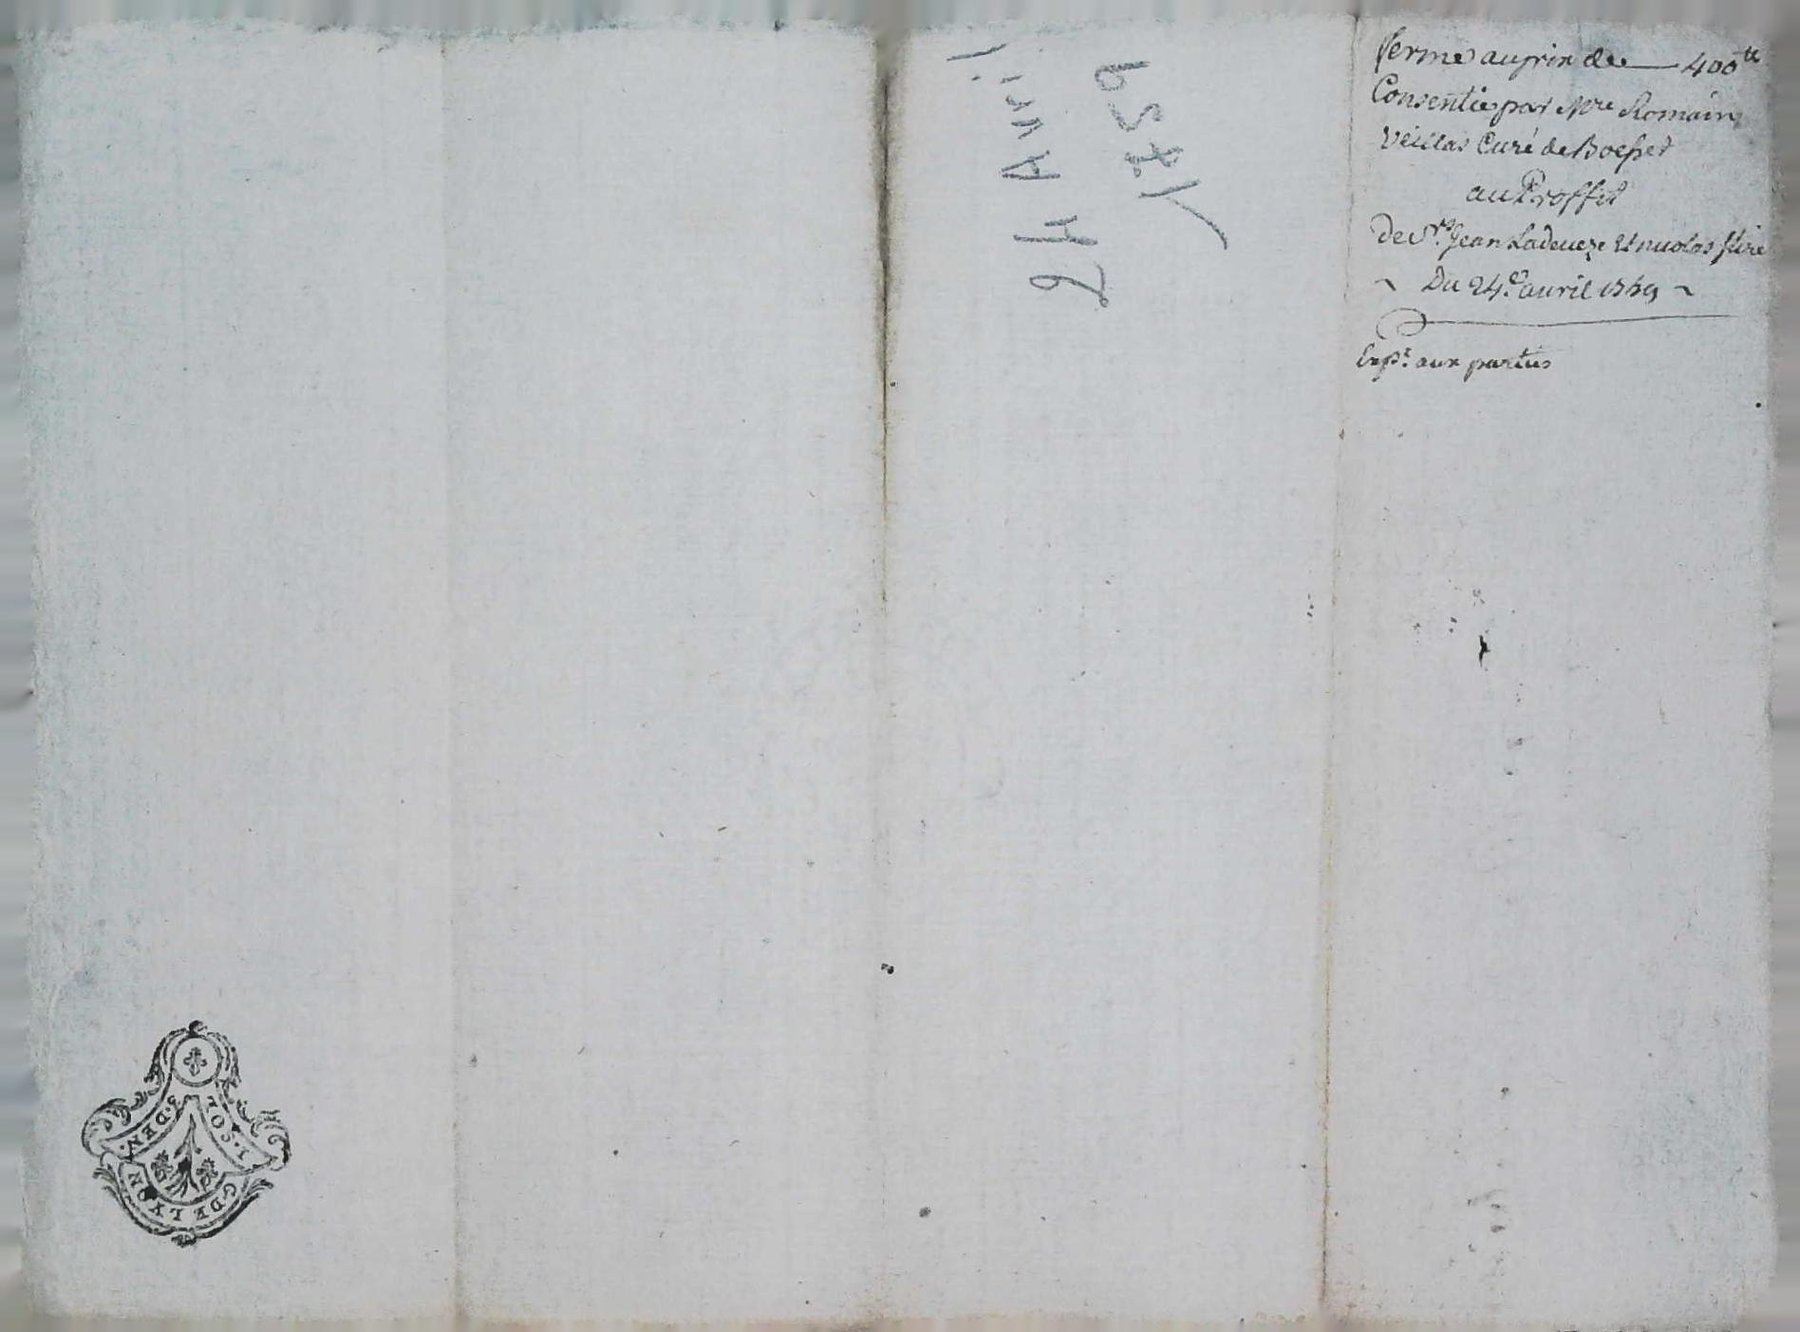 ferme au prix de — 400tt
Consentie par Mre Romain
Veillas Curé de Boësset
au Proffit
de Srs Jean Ladeveze et
Du 24e avril 1759
Exp.t aux parties
24 Avril
1759
1. SOL
3. DEN.
G. DE LYON